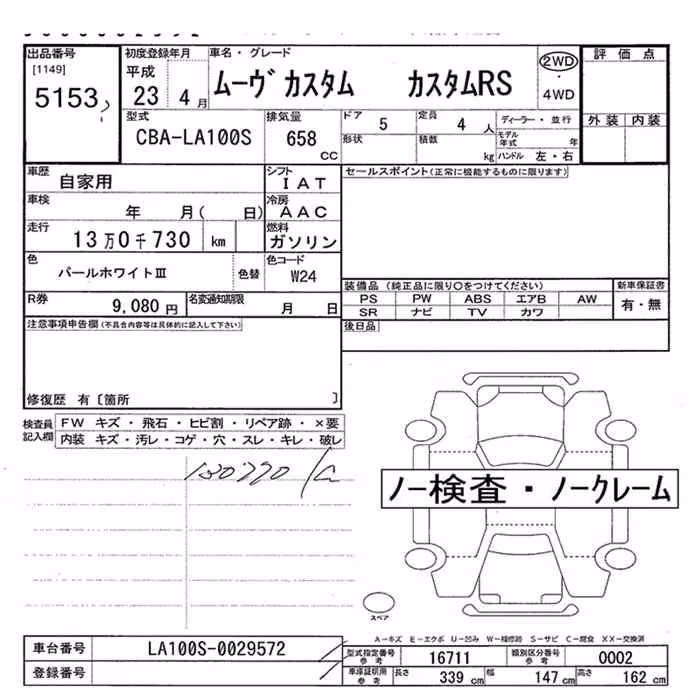 出品番号 初度登録年月 車名・グレード 評価点
[1149] 平成 ムーヴカスタム カスタムRS 2WD
5153 23 4月 ・4WD
型式 排気量 ドア 5 定員 4人 ディーラー・並行 外装 内装
CBA-LA100S 658 cc 形状 積数 kg モデル年式 年
ハンドル 左・右
車歴 自家用 シフト IAT セールスポイント(正常に機能するものに限ります)
車検 年 月( 日) 冷房 AAC
走行 13万0千730 km 燃料 ガソリン
色 パールホワイトⅢ 色替 色コード W24
装備品 (純正品に限り○をつけてください) 新車保証書
R券 9,080円 名変通知期限 月 日 PS PW ABS エアB AW 有・無
SR ナビ TV カワ
注意事項申告欄(不具合内容等は具体的に記入して下さい) 後日品
修復歴 有〔箇所 〕
検査員記入欄 FW キズ・飛石・ヒビ割・リペア跡・×要
内装 キズ・汚レ・コゲ・穴・スレ・キレ・破レ
ノー検査・ノークレーム
スペア
A−キズ E−エクボ U−凹み W−補修跡 S−サビ C−腐食 XX−交換済
車台番号 LA100S-0029572 型式指定番号 参考 16711 類別区分番号 参考 0002
登録番号 車庫証明用 参考 長さ 339 cm 幅 147 cm 高さ 162 cm